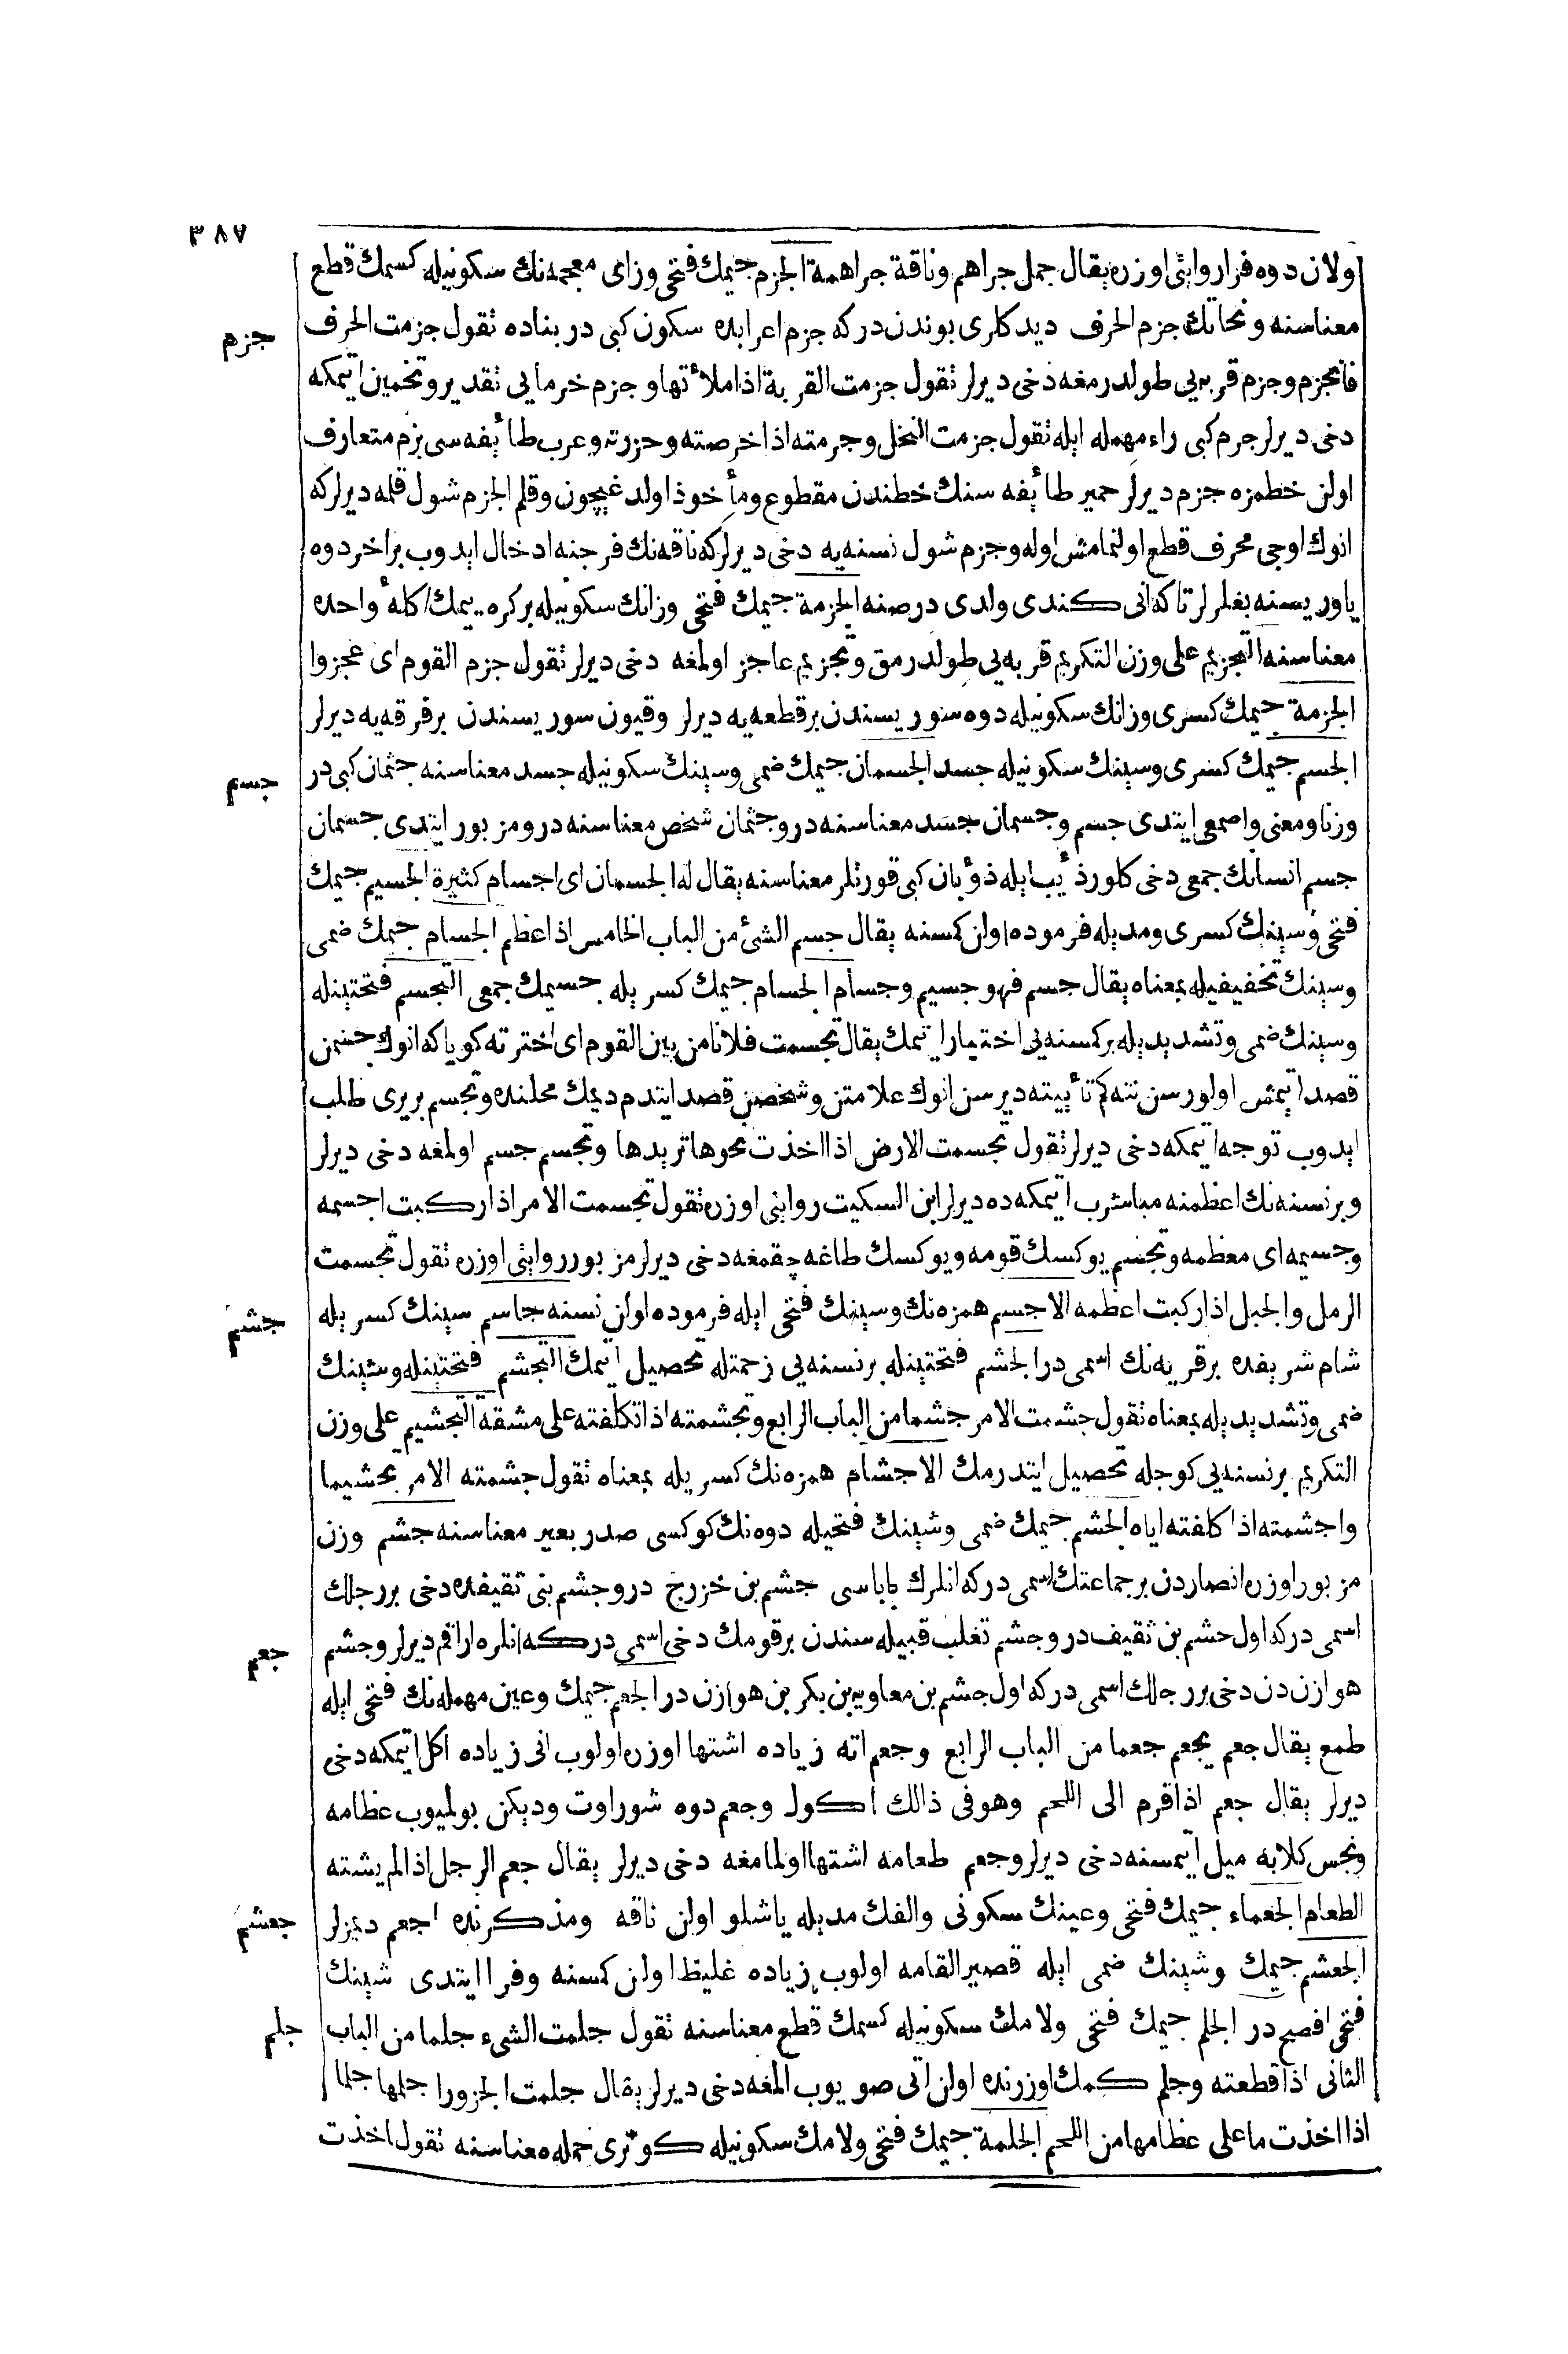 ٣٨٧
اولان دوه فزا روايتى اوزره يقال جمل جراهم وناقة جراهمة الجزم جيمك فتحى وزاى معجمه نك سكونيله كسمك قطع
جزم
معناسنه ونحاتك جزم الحرف ديدكلرى بوندن دركه جزم اعرابده سكون كبى در بناده تقول جزمت الحرف
فانجزم وجزم قربه يى طولدرمغه دخى ديرلر تقول جزمت القربة اذا ملأتها وجزم خرمايى تقدير وتخمين اتمكه
دخى ديرلر جرم كبى راء مهمله ايله تقول جزمت النخل وجرمته اذا خرصته وحزرته وعرب طائفه سى بزم متعارف
اولن خطمزه جزم ديرلر حمير طائفه سنك خطندن مقطوع ومأخوذ اولدغيچون وقلم الجزم شول قلمه ديرلركه
انوك اوجى محرف قطع اولنمامش اوله وجزم شول نسنه يه دخى ديرلركه ناقه نك فرجنه ادخال ايدوب براخر دوه
ياوريسنه بغلرلر تاكه انى كندى ولدى درصنه الجزمة جيمك فتحى وزانك سكونيله بركره ييمك اكلهٔ واحده
معناسنه التجزيم على وزن التكريم قربه يى طولدرمق وتجزيم عاجز اولمغه دخى ديرلر تقول جزم القوم اى عجزوا
الجزمة جيمك كسرى وزانك سكونيله دوه سوريسندن برقطعه يه ديرلر وقيون سوريسندن برفرقه يه ديرلر
جسم
الجسم جيمك كسرى وسينك سكونيله جسد الجسمان جيمك ضمى وسينك سكونيله جسد معناسنه جثمان كبى در
وزنا ومعنى واصمعى ايتدى جسم وجسمان جسد معناسنه در وجثمان شخص معناسنه در ومزبور ايتدى جسمان
جسم انسانك جمعى دخى كلور ذئب ايله ذؤبان كبى قورتلر معناسنه يقال له الجسمان اى اجسام كثيرة الجسيم جيمك
فتحى وسينك كسرى ومديله فرموده اولن كمسنه يقال جسم الشئ من الباب الخامس اذا عظم الجسام جيمك ضمى
وسينك تخفيفيله بمعناه يقال جسم فهو جسيم وجسام الجسام جيمك كسريله جسيمك جمعى التجسم فتحتينله
وسينك ضمى وتشديديله بركمسنه يى اختيار اتمك يقال تجسمت فلانا من بين القوم اى اخترته كويا كه انوك جسمن
قصد اتمش اولورسن نته كم تأييته ديرسن انوك علامتن وشخصن قصد ايتدم ديمك محلنده وتجسم بر يرى طلب
ايدوب توجه اتمكه دخى ديرلر تقول تجسمت الارض اذا اخذت نحوها تريدها وتجسم جسم اولمغه دخى ديرلر
وبرنسنه نك اعظمنه مباشرب اتمكه ده ديرلر ابن السكيت روايتى اوزره تقول تجسمت الامر اذا ركبت اجسمه
وجسيمه اى معظمه وتجسم يوكسك قومه ويوكسك طاغه چقمغه دخى ديرلر مزبور روايتى اوزره تقول تجسمت
جشم
الرمل والجبل اذا ركبت اعظمه الاجسم همزه نك وسينك فتحى ايله فرموده اولن نسنه جاسم سينك كسريله
شام شريفده برقريه نك اسمى در الجشم فتحتينله برنسنه يى زحمتله تحصيل اتمك التجشم فتحتينله وشينك
ضمى وتشديديله بمعناه تقول جشمت الامر جشما من الباب الرابع وتجشمته اذا تكلفته على مشقة التجشيم على وزن
التكريم برنسنه يى كوجله تحصيل ايتدرمك الاجشام همزه نك كسريله بمعناه تقول جشمته الامر تجشيما
واجشمته اذا كلفته اياه الجشم جيمك ضمى وشينك فتحيله دوه نك كوكسى صدر بعير معناسنه جشم وزن
مزبور اوزره انصاردن برجماعتك اسمى دركه انلرك باباسى جشم بن خزرج در وجشم بنى ثقيفده دخى بررجلك
اسمى دركه اول جشم بن ثقيف در وجشم تغلب قبيله سندن برقومك دخى اسمى دركه انلره اراقم ديرلر وجشم
جعم
هوازن دن دخى بررجلك اسمى دركه اول جشم بن معاويه بن بكر بن هوازن در الجعم جيمك وعين مهمله نك فتحى ايله
طمع يقال جعم يجعم جعما من الباب الرابع وجعم اته زياده اشتها اوزره اولوب انى زياده اكل اتمكه دخى
ديرلر يقال جعم اذا قرم الى اللحم وهو فى ذالك اكول وجعم دوه شوراوت وديكن بولميوب عظامه
ونجس كلابه ميل اتمسنه دخى ديرلر وجعم طعامه اشتها اولمامغه دخى ديرلر يقال جعم الرجل اذا لم يشته
جعشم
الطعام الجعماء جيمك فتحى وعينك سكونى والفك مديله ياشلو اولن ناقه ومذكرنده اجعم ديمزلر
الجعشم جيمك وشينك ضمى ايله قصير القامه اولوب زياده غليظ اولن كمسنه وفرا ايتدى شينك
جلم
فتحى افصح در الجلم جيمك فتحى ولامك سكونيله كسمك قطع معناسنه تقول جلمت الشىء جلما من الباب
الثانى اذا قطعته وجلم كمك اوزرنده اولن اتى صويوب المغه دخى ديرلر يقال جلمت الجزور اجلمها جلما
اذا اخذت ما على عظامها من اللحم الجلمة جيمك فتحى ولامك سكونيله كوترى جمله معناسنه تقول اخذت